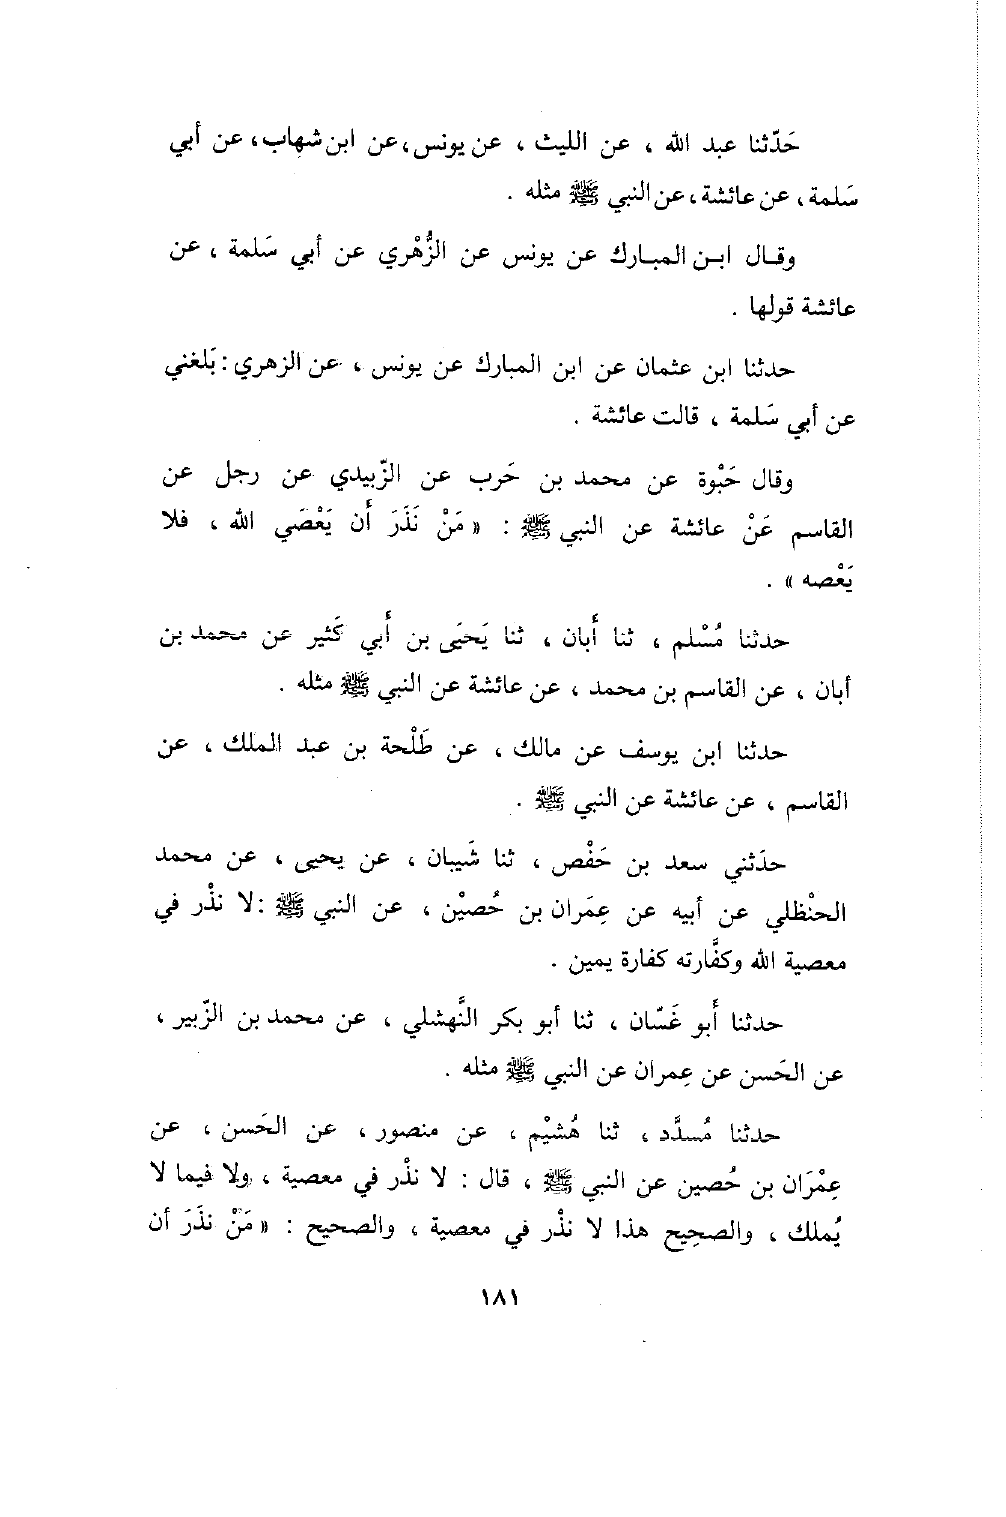 حَدّثنا عبد الله ، عن الليث ، عن يونس، عن ابن شهاب، عن أبي
سَلمة، عن عائشة، عن النبي ﷺ مثله .
وقال ابن المبارك عن يونس عن الزُّهْري عن أبي سَلمة ، عن
عائشة قولها .
حدثنا ابن عثمان عن ابن المبارك عن يونس ، عن الزهري : بَلغني
عن أبي سَلمة ، قالت عائشة .
وقال حَبْوة عن محمد بن حَرب عن الزّبيدي عن رجل عن
القاسم عَنْ عائشة عن النبي ﷺ : « مَنْ نَذَرَ أَن يَعْصَي الله ، فلا
يَعْصه » .
حدثنا مُسْلم ، ثنا أَبان ، ثنا يَحيَى بن أَبي كَثير عن محمد بن
أبان ، عن القاسم بن محمد ، عن عائشة عن النبي ﷺ مثله .
حدثنا ابن يوسف عن مالك ، عن طَلْحة بن عبد الملك ، عن
القاسم ، عن عائشة عن النبي ﷺ .
حدَثني سعد بن حَفْص ، ثنا شَيبان ، عن يحيى ، عن محمد
الحنْظلي عن أبيه عن عِمَران بن حُصيْن ، عن النبي ﷺ :لا نذْر في
معصية الله وكفَّارته كفارة يمين .
حدثنا أَبو غَسّان ، ثنا أبو بكر النَّهشلي ، عن محمد بن الزّبير ،
عن الحَسن عن عِمران عن النبي ﷺ مثله .
حدثنا مُسدَّد ، ثنا هُشيْم ، عن منصور ، عن الحَسن ، عن
عِمْرَان بن حُصين عن النبي ﷺ ، قال : لا نذْر في معصية ، ولا فيما لا
يُملك ، والصحِيح هذا لا نذْر في معصية ، والصحيح : « مَنْ نذَرَ أن
١٨١